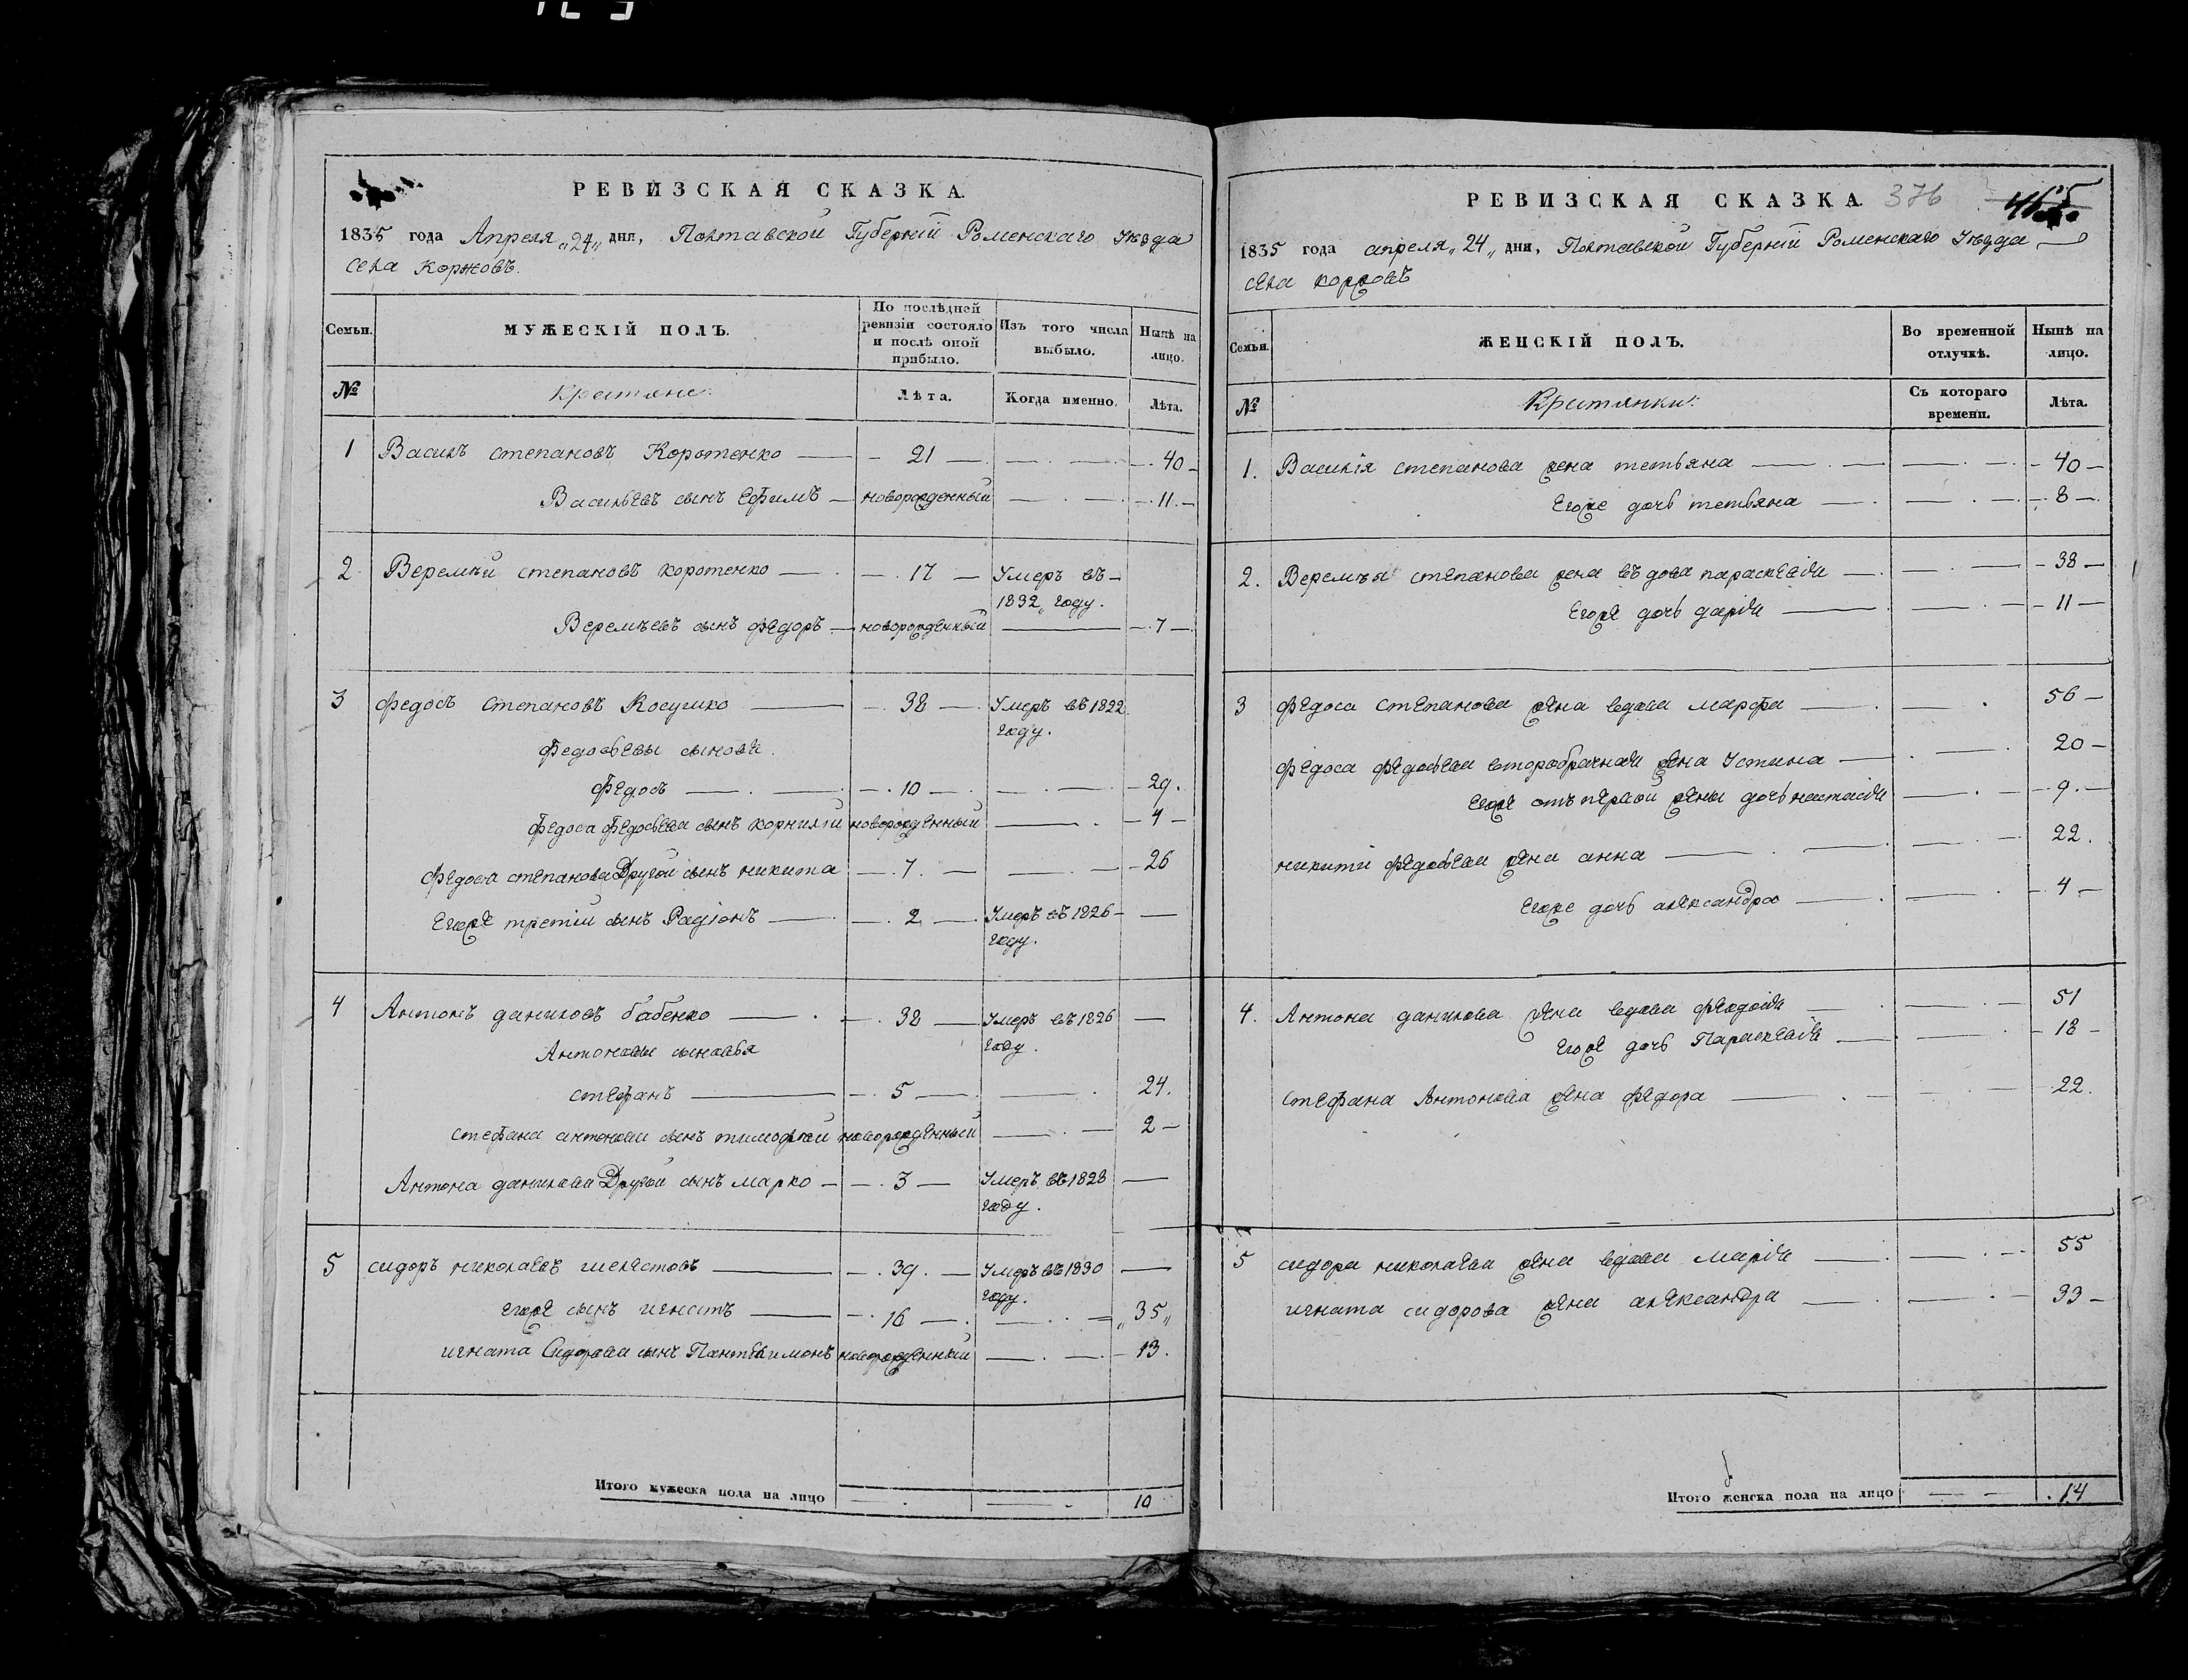 РЕВИЗСКАЯ СКАЗКА.
1835 года Апреля „24„ дня, Полтавской Губернїи Роменскаго Уѣзда
села Коржовъ.
Семьи.
МУЖЕСКІЙ ПОЛЪ.
По послѣдней ревизіи состояло и послѣ оной прибыло.
Изъ того числа выбыло.
Нынѣ на лицо.
№
Крестяне
Лѣта.
Когда именно.
Лѣта.
1 Василъ степановъ Коротенко — 21 — 40
Васильевъ сынъ Ефимъ — новорожденный — 11
2 Веремѣй степановъ коротенко — 17 — Умеръ въ
1832„ году.
Веремѣевъ сынъ федоръ — новорожденный — 7
3 федосъ степановъ Косушко — 38 — Умеръ въ 1822
году.
Федосѣевы сыновя
Федосъ — 10 — 29.
Федоса Федосѣева сынъ корнилїй новорожденный — 4
федоса степанова Другой сынъ никита — 7 — 26
Егоже третїй сынъ Радїонъ — 2 — Умеръ въ 1826 —
году.
4 Антонъ даниловъ бабенко — 38 — Умеръ въ 1826 —
году.
Антоновы сыновья
стефанъ — 5 — 24.
стефана антонова сынъ тимофѣй новорожденный — 2
Антона данилова Другой сынъ марко — 3 — Умеръ въ 1828 —
году.
5 сидоръ николаевъ шелестовъ — 39. — Умеръ въ 1830 —
году.
егоже сынъ игнатъ — 16 — „35„
игната Сидорова сынъ Пантелимонъ новорожденный — 13.
Итого мужеска пола на лицо — — 10
РЕВИЗСКАЯ СКАЗКА. 376
1835 года апреля „24„ дня, Полтавской Губернїи Роменскаго Уѣзда
села коржовъ
Семьи.
ЖЕНСКІЙ ПОЛЪ.
Во временной отлучкѣ.
Нынѣ на лицо.
№
Крестянки
Съ котораго времени.
Лѣта.
1. Василїя степанова жена тетьяна — 40
Егоже дочь тетьяна — 8
2. Веремѣя степанова жена въдова параскевїя — 38
Егоже дочь дарїя — 11
3 федоса степанова жена вдова марфа — 56
федоса федосѣева второбрачная жена Устина — 20
Егоже отъ первой жены дочь настасїя — 9.
никити федосѣева жена анна — 22.
Егоже дочь александра — 4
4. Антона данилова жена вдова феодосїя — 51
Егоже дочь Параскевїя — 18
стефана Антонова жена федора — 22.
5 сидора николаева жена вдова марїя — 55
игната сидорова жена александра — 33
Итого женска пола на лицо — — 14